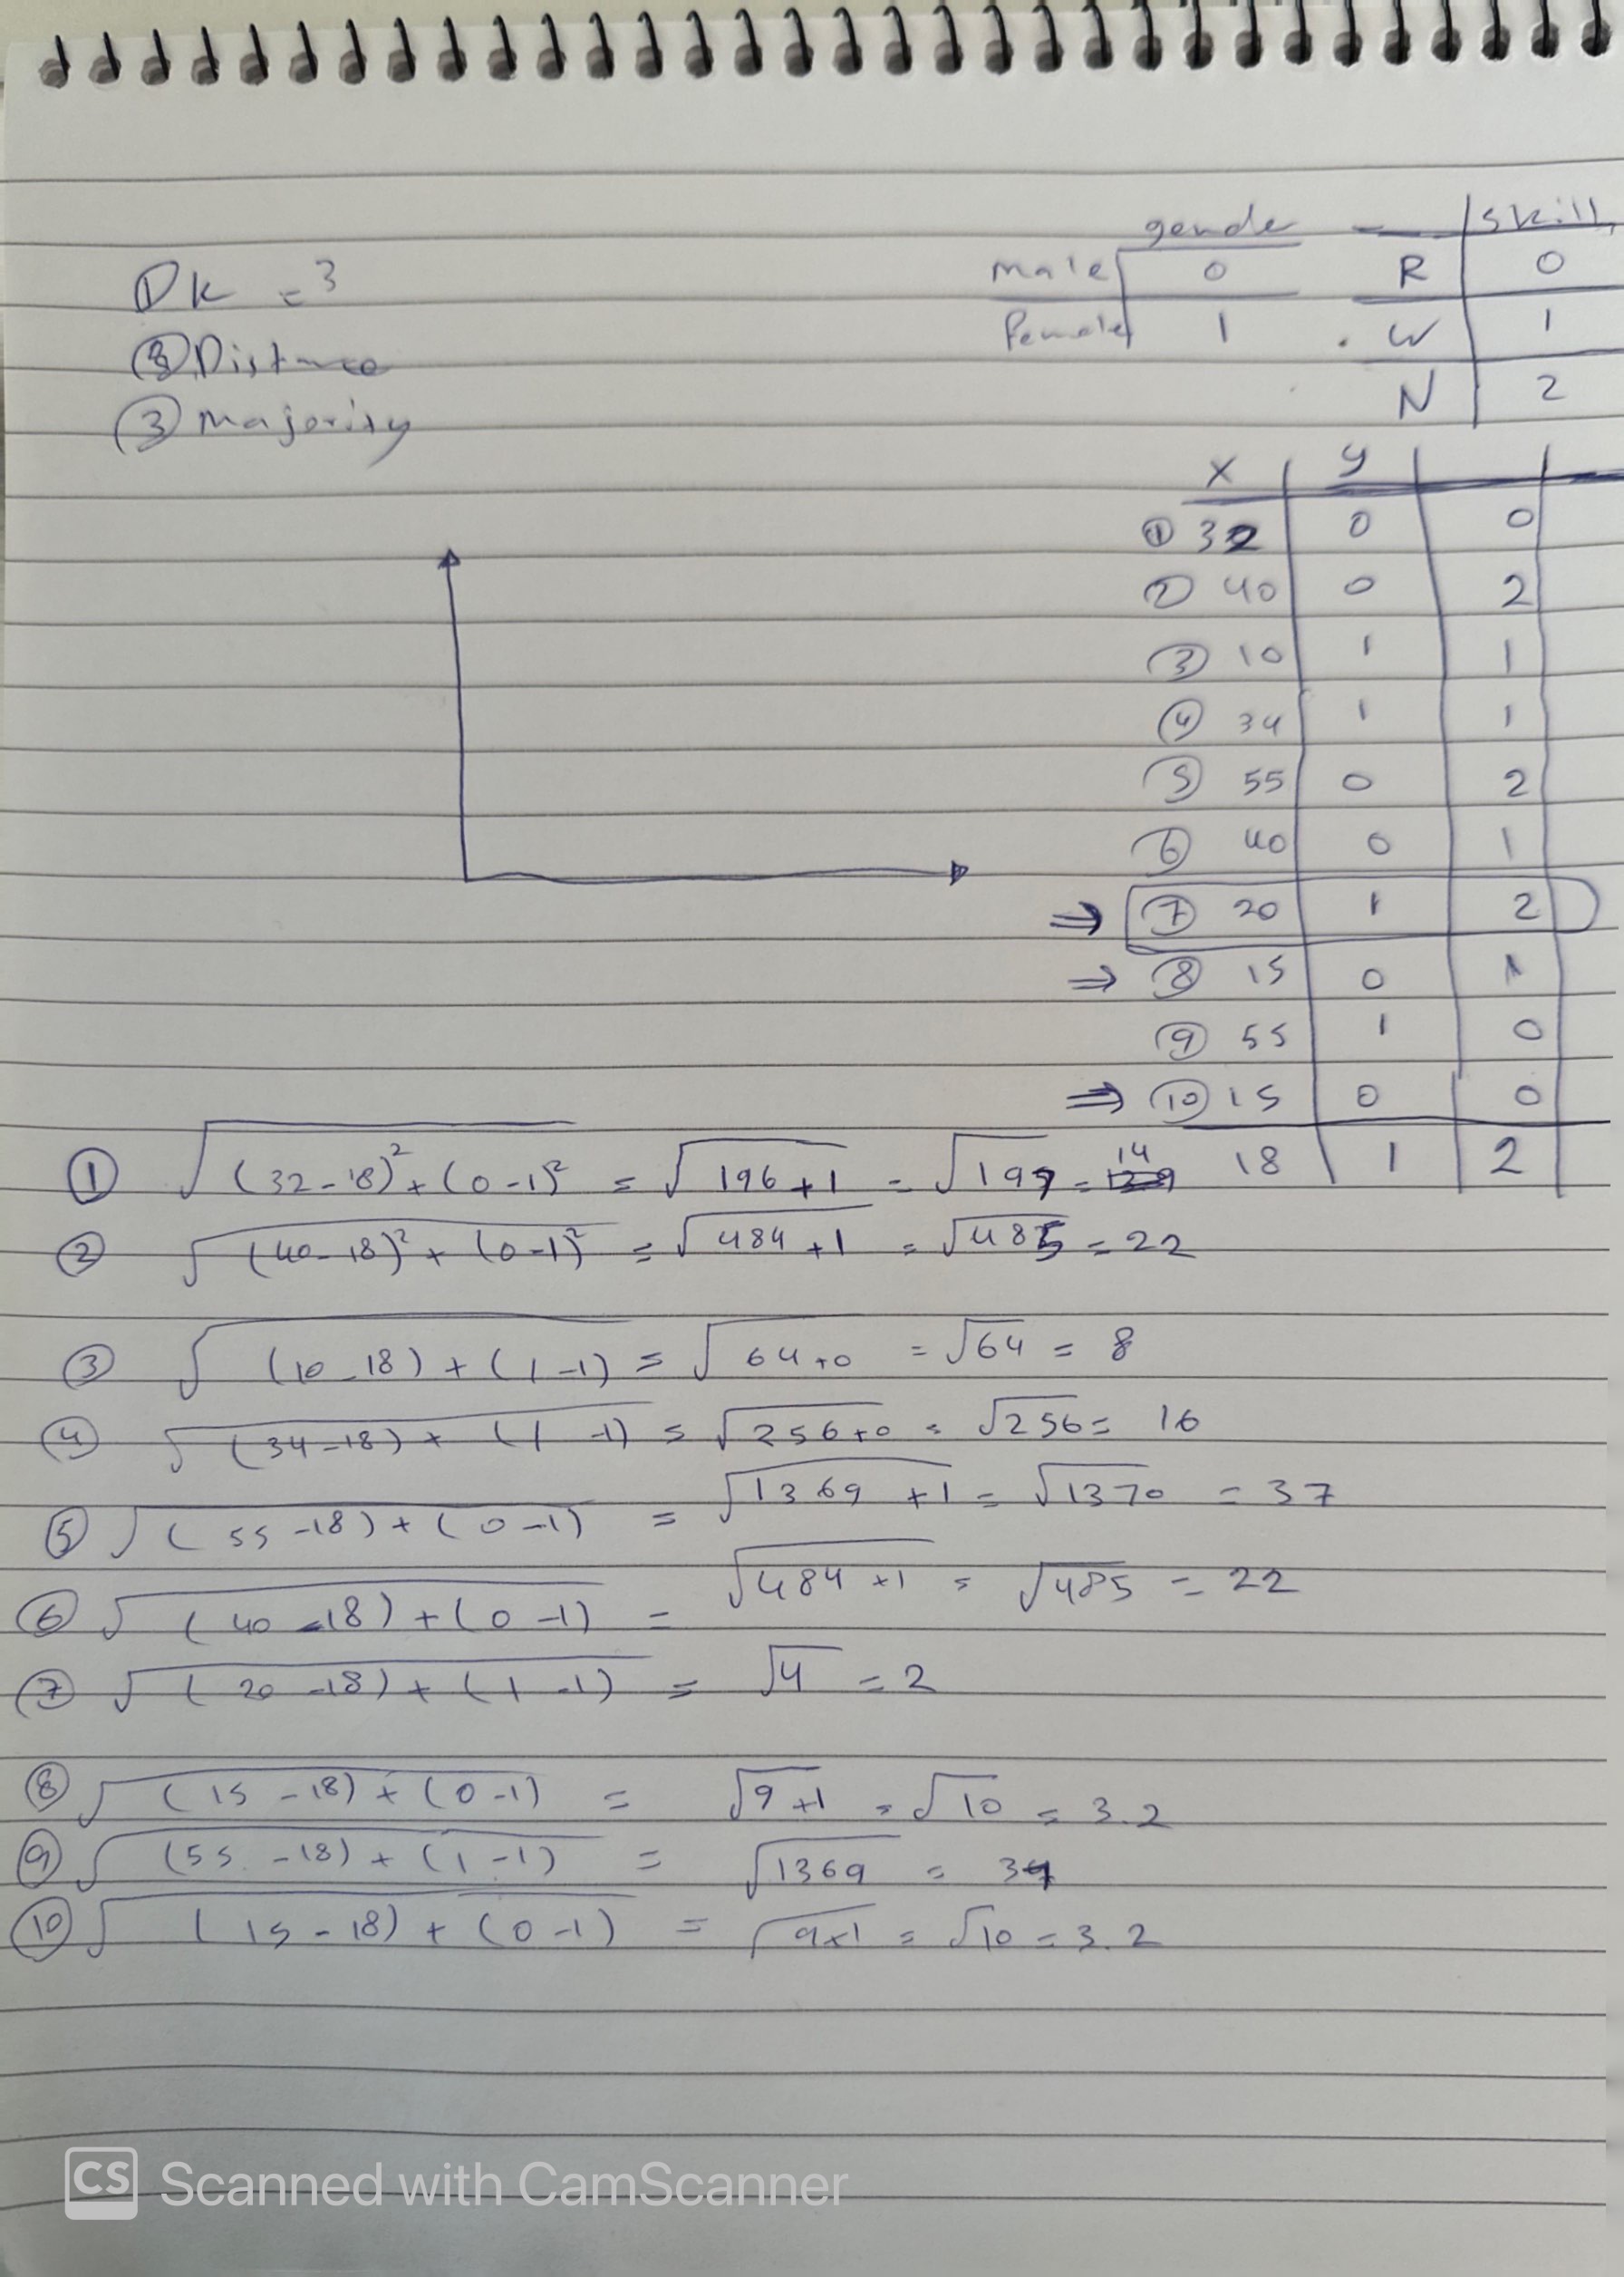 gende | skill
male 0 | R 0
Female 1 | W 1
N 2
① K = 3
② Distance
③ Majority
x | y |
① 32 | 0 | 0
② 40 | 0 | 2
③ 10 | 1 | 1
④ 34 | 1 | 1
⑤ 55 | 0 | 2
⑥ 40 | 0 | 1
⇒ ⑦ 20 | 1 | 2
⇒ ⑧ 15 | 0 | 1
⑨ 55 | 1 | 0
⇒ ⑩ 15 | 0 | 0
18 | 1 | 2
① √(32-18)² + (0-1)² = √196+1 = √197 = 14
② √(40-18)² + (0-1)² = √484+1 = √485 = 22
③ √(10-18) + (1-1) = √64+0 = √64 = 8
④ √(34-18) + (1-1) = √256+0 = √256 = 16
⑤ √(55-18) + (0-1) = √1369+1 = √1370 = 37
⑥ √(40-18) + (0-1) = √484+1 = √485 = 22
⑦ √(20-18) + (1-1) = √4 = 2
⑧ √(15-18) + (0-1) = √9+1 = √10 = 3.2
⑨ √(55-18) + (1-1) = √1369 = 37
⑩ √(15-18) + (0-1) = √9+1 = √10 = 3.2
CS Scanned with CamScanner